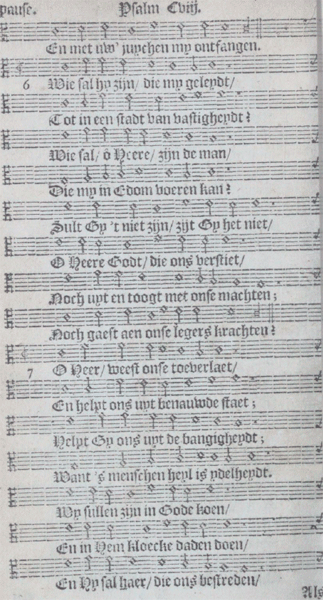 pause. Psalm Cviij.
En met uw' juychen my ontfangen.
6 Wie sal hy zijn/ die my geleydt/
Tot in een stadt van vastigheydt?
Wie sal/ ô Heere/ zijn de man/
Die my in Edom voeren kan?
Sult Gy 't niet zijn/ zijt Gy het niet/
O Heere Godt/ die ons verstiet/
Noch uyt en toogt met onse machten;
Noch gaest aen onse legers krachten?
7 O Heer/ weest onse toeverlaet/
En helpt ons uyt benauwde staet;
Helpt Gy ons uyt de bangigheydt;
Want 's menschen heyl is ydelheydt.
Wy sullen zijn in Gode koen/
En in Hem kloecke daden doen/
En Hy sal haer/ die ons bestreden/
Als